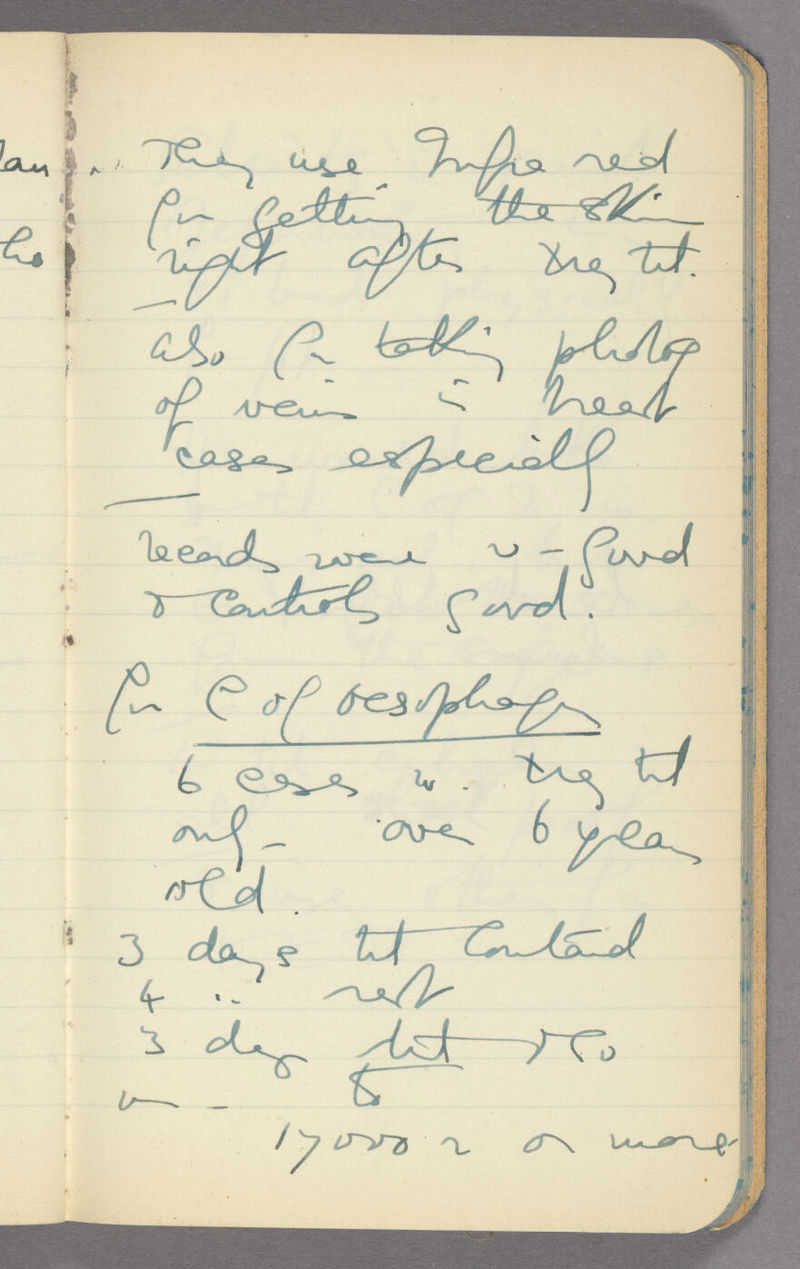 They use Infra red
for getting the skin
right after Xray tt.
also for taking photog
of veins in breast
cases especially
Records were v - good
& controls good.
For C of oesophagus
6 cases w. Xray tt
only - over 6 years
old.
3 days tt
4 " rest
3 day tt & so
on - to
17000 r or more